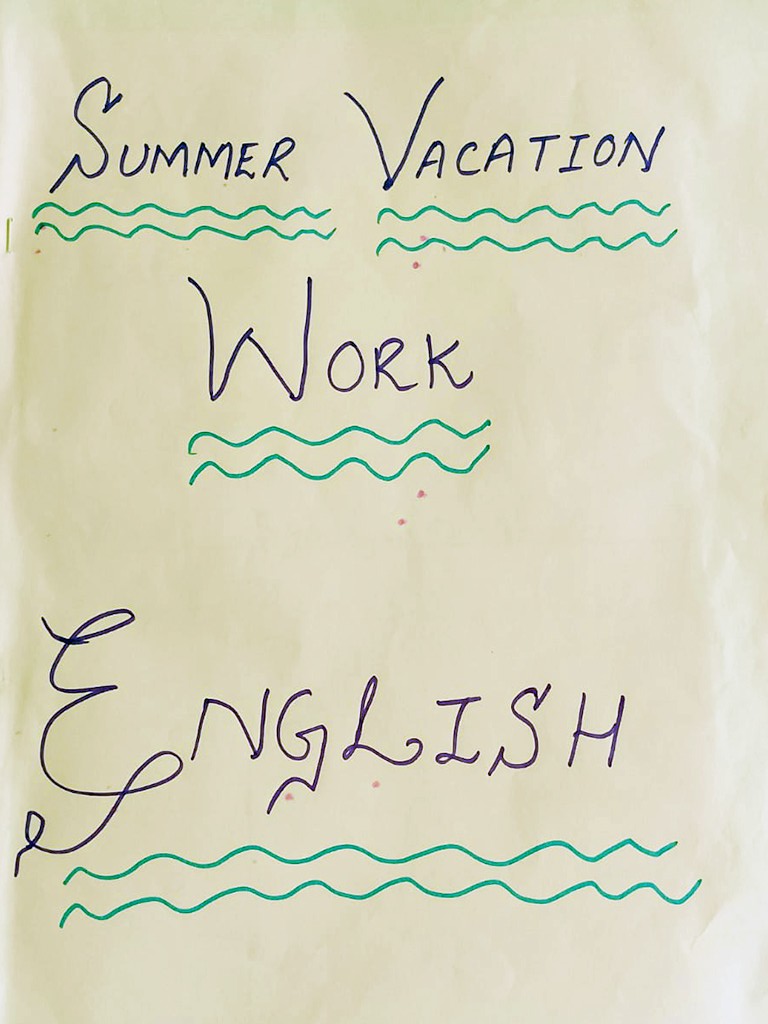 SUMMER VACATION
WORK
ENGLISH